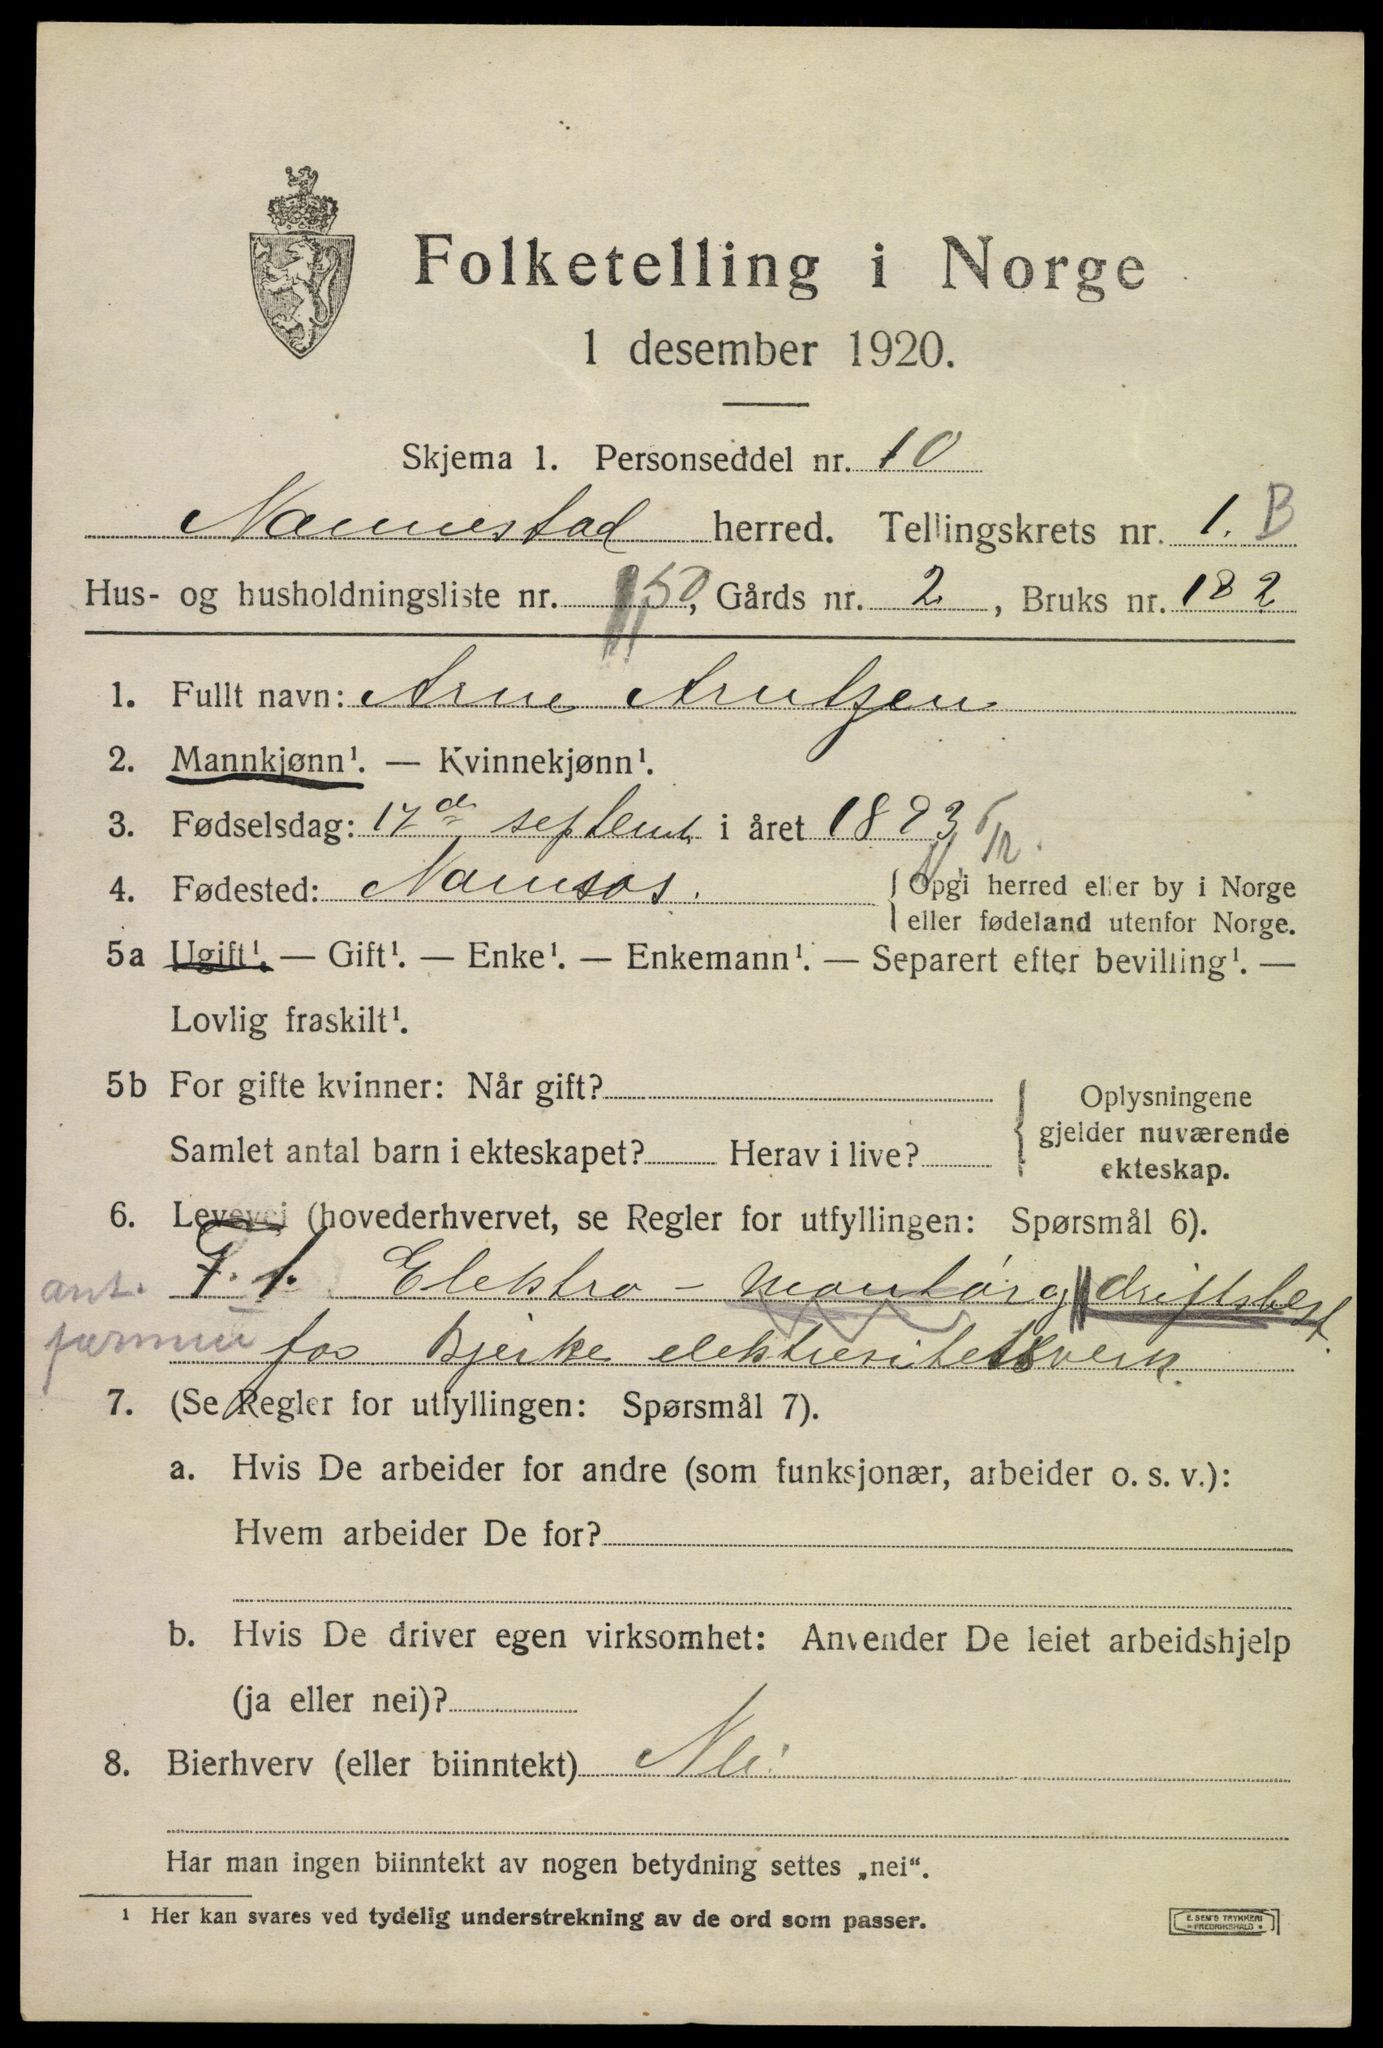 Folketelling i Norge
1 desember 1920.
Skjema 1. Personseddel nr. 10
Nannestad herred. Tellingskrets nr. 1. B
Hus- og husholdningsliste nr. 50, Gårds nr. 2, Bruks nr. 182
1. Fullt navn: Arne Arntzen
2. Mannkjønn¹. — Kvinnekjønn¹.
3. Fødselsdag: 17de septemb. i året 1893
4. Fødested: Namsos. { Opgi herred eller by i Norge
eller fødeland utenfor Norge.
5a Ugift¹. — Gift¹. — Enke¹. — Enkemann¹. — Separert efter bevilling¹. —
Lovlig fraskilt¹.
5b For gifte kvinner: Når gift? { Oplysningene
gjelder nuværende
Samlet antal barn i ekteskapet? Herav i live?
ekteskap.
6. Levevei (hovederhvervet, se Regler for utfyllingen: Spørsmål 6).
Elektro - montør og driftsbest.
for Bjerke elektresitetsverk.
7. (Se Regler for utfyllingen: Spørsmål 7).
a. Hvis De arbeider for andre (som funksjonær, arbeider o. s. v.):
Hvem arbeider De for?
b. Hvis De driver egen virksomhet: Anvender De leiet arbeidshjelp
(ja eller nei)?
8. Bierhverv (eller biinntekt) Nei
Har man ingen biinntekt av nogen betydning settes „nei".
¹ Her kan svares ved tydelig understrekning av de ord som passer.
E. SEM'S TRYKKERI
FREDRIKSHALD